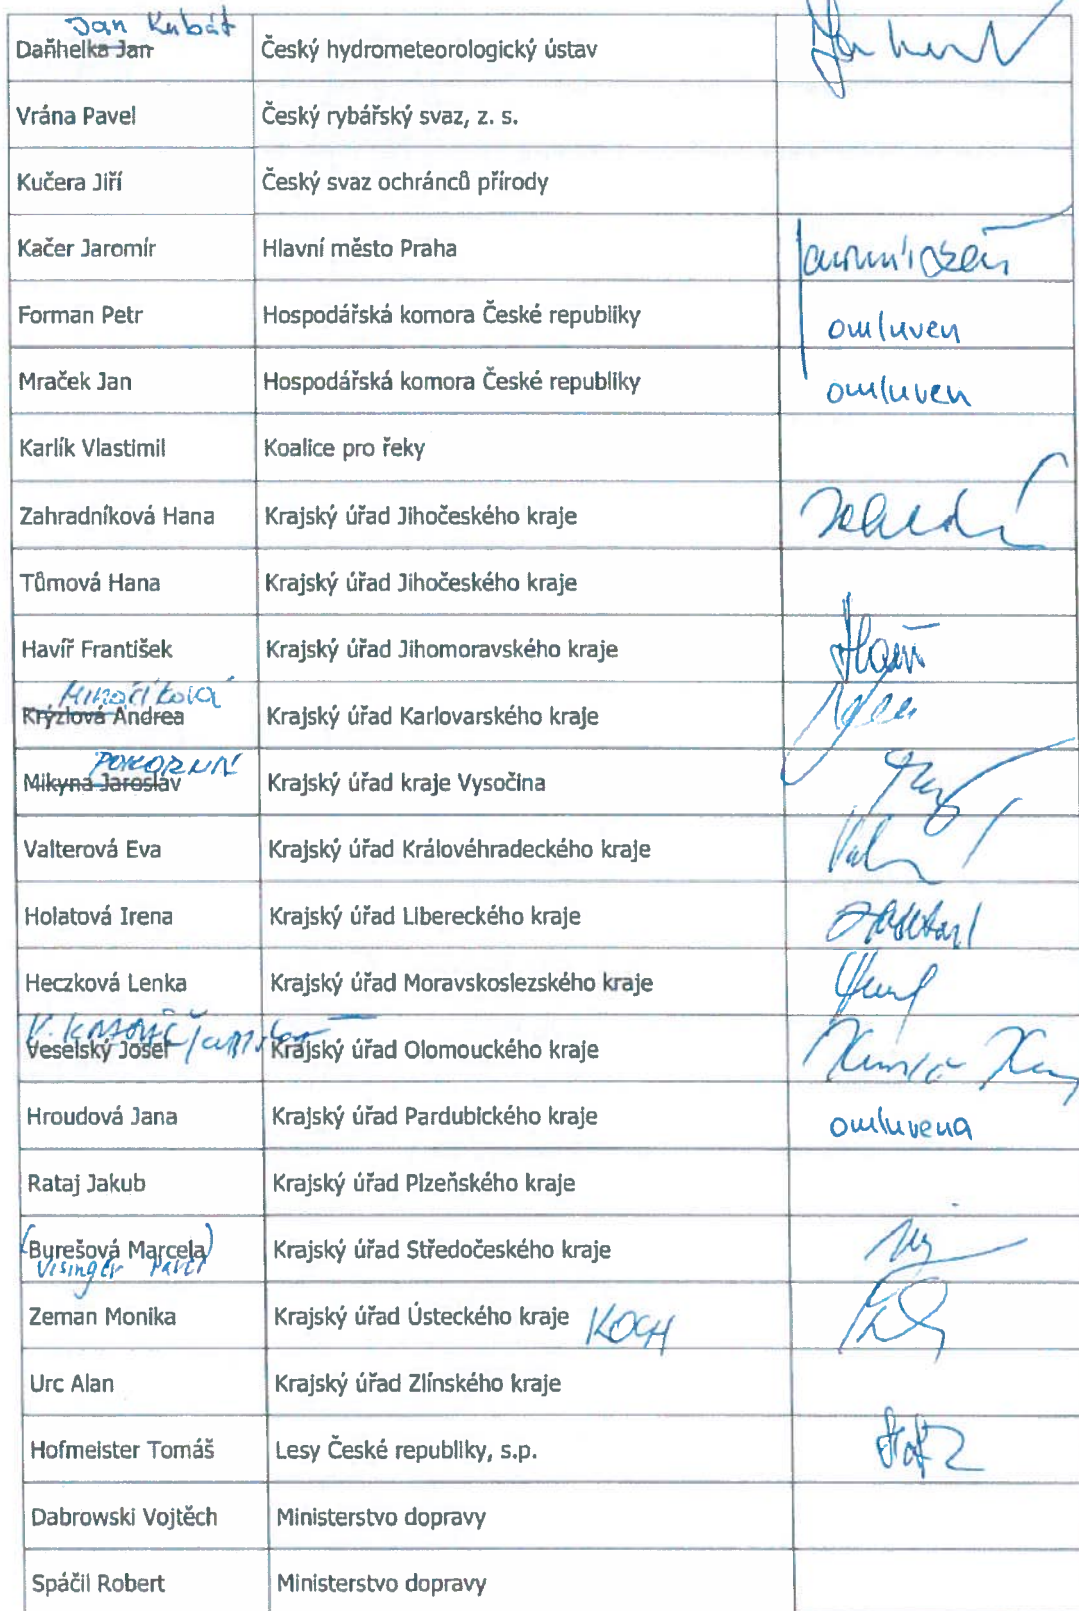 Jan Kubát
Daňhelka Jan Český hydrometeorologický ústav
Vrána Pavel Český rybářský svaz, z. s.
Kučera Jiří Český svaz ochránců přírody
Kačer Jaromír Hlavní město Praha
Forman Petr Hospodářská komora České republiky omluven
Mraček Jan Hospodářská komora České republiky omluven
Karlík Vlastimil Koalice pro řeky
Zahradníková Hana Krajský úřad Jihočeského kraje
Tůmová Hana Krajský úřad Jihočeského kraje
Havíř František Krajský úřad Jihomoravského kraje
Krýzlová Andrea Krajský úřad Karlovarského kraje
POKORNÝ
Mikyna Jaroslav Krajský úřad kraje Vysočina
Valterová Eva Krajský úřad Královéhradeckého kraje
Holatová Irena Krajský úřad Libereckého kraje
Heczková Lenka Krajský úřad Moravskoslezského kraje
Veselský Josef Krajský úřad Olomouckého kraje
Hroudová Jana Krajský úřad Pardubického kraje omluvena
Rataj Jakub Krajský úřad Plzeňského kraje
(Burešová Marcela) Krajský úřad Středočeského kraje
Visinger Pavel
Zeman Monika Krajský úřad Ústeckého kraje KOCH
Urc Alan Krajský úřad Zlínského kraje
Hofmeister Tomáš Lesy České republiky, s.p.
Dabrowski Vojtěch Ministerstvo dopravy
Spáčil Robert Ministerstvo dopravy